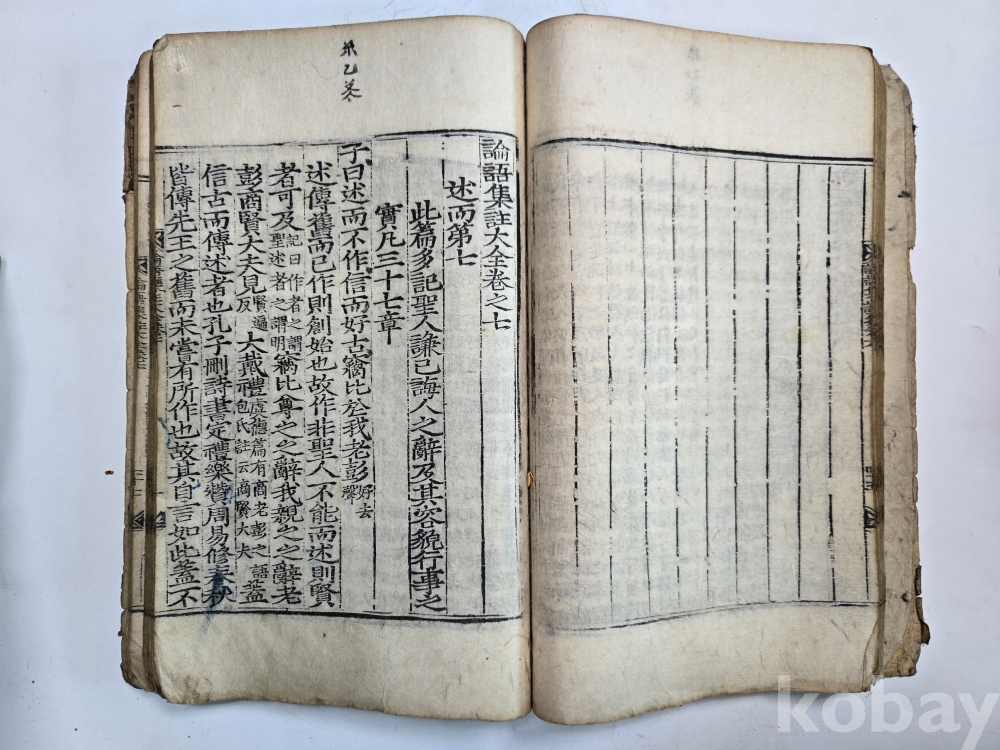 論語集註大全卷之七
述而第七
此篇多記聖人謙己誨人之辭及其容貌行事之
實凡三十七章
子曰述而不作信而好古竊比於我老彭好去聲
述傳舊而已作則創始也故作非聖人不能而述則賢
者可及記曰作者之謂聖述者之謂明竊比尊之之辭我親之之辭老
彭商賢大夫見賢遍反大戴禮虞德篇有商老彭之語包氏註云商賢大夫蓋
信古而傳述者也孔子刪詩書定禮樂贊周易修春秋
皆傳先王之舊而未嘗有所作也故其自言如此蓋不
kobay